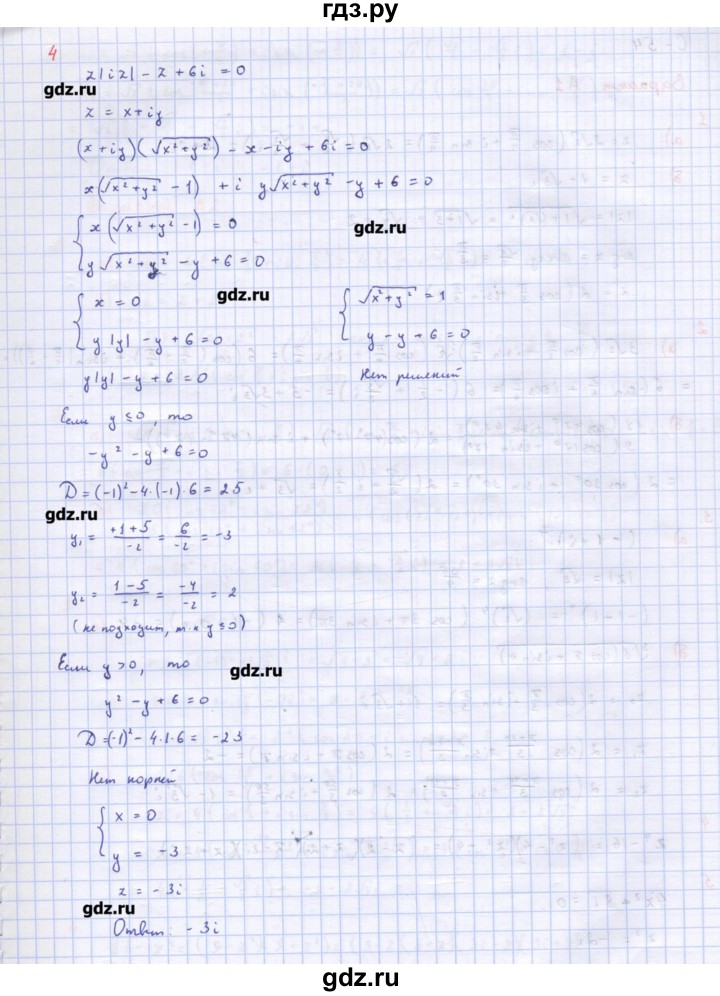 гдз.ру
4
z|iz| - z + 6i = 0
gdz.ru
z = x + iy
(x + iy)(√x²+y²) - x - iy + 6i = 0
x(√x²+y² - 1) + i y√x²+y² - y + 6 = 0
{ x(√x²+y² - 1) = 0
gdz.ru
y√x²+y² - y + 6 = 0
gdz.ru
{ x = 0
y|y| - y + 6 = 0
{ √x²+y² = 1
y - y + 6 = 0
y|y| - y + 6 = 0
Нет решений
Если y ≤ 0, то
-y² - y + 6 = 0
D = (-1)² - 4·(-1)·6 = 25
gdz.ru
y₁ = +1+5/-2 = 6/-2 = -3
y₂ = 1-5/-2 = -4/-2 = 2
(не подходит, т.к y ≤ 0)
Если y > 0, то
gdz.ru
y² - y + 6 = 0
D = (-1)² - 4·1·6 = -23
Нет корней
{ x = 0
y = -3
z = -3i
gdz.ru
Ответ: -3i
гдз.ру